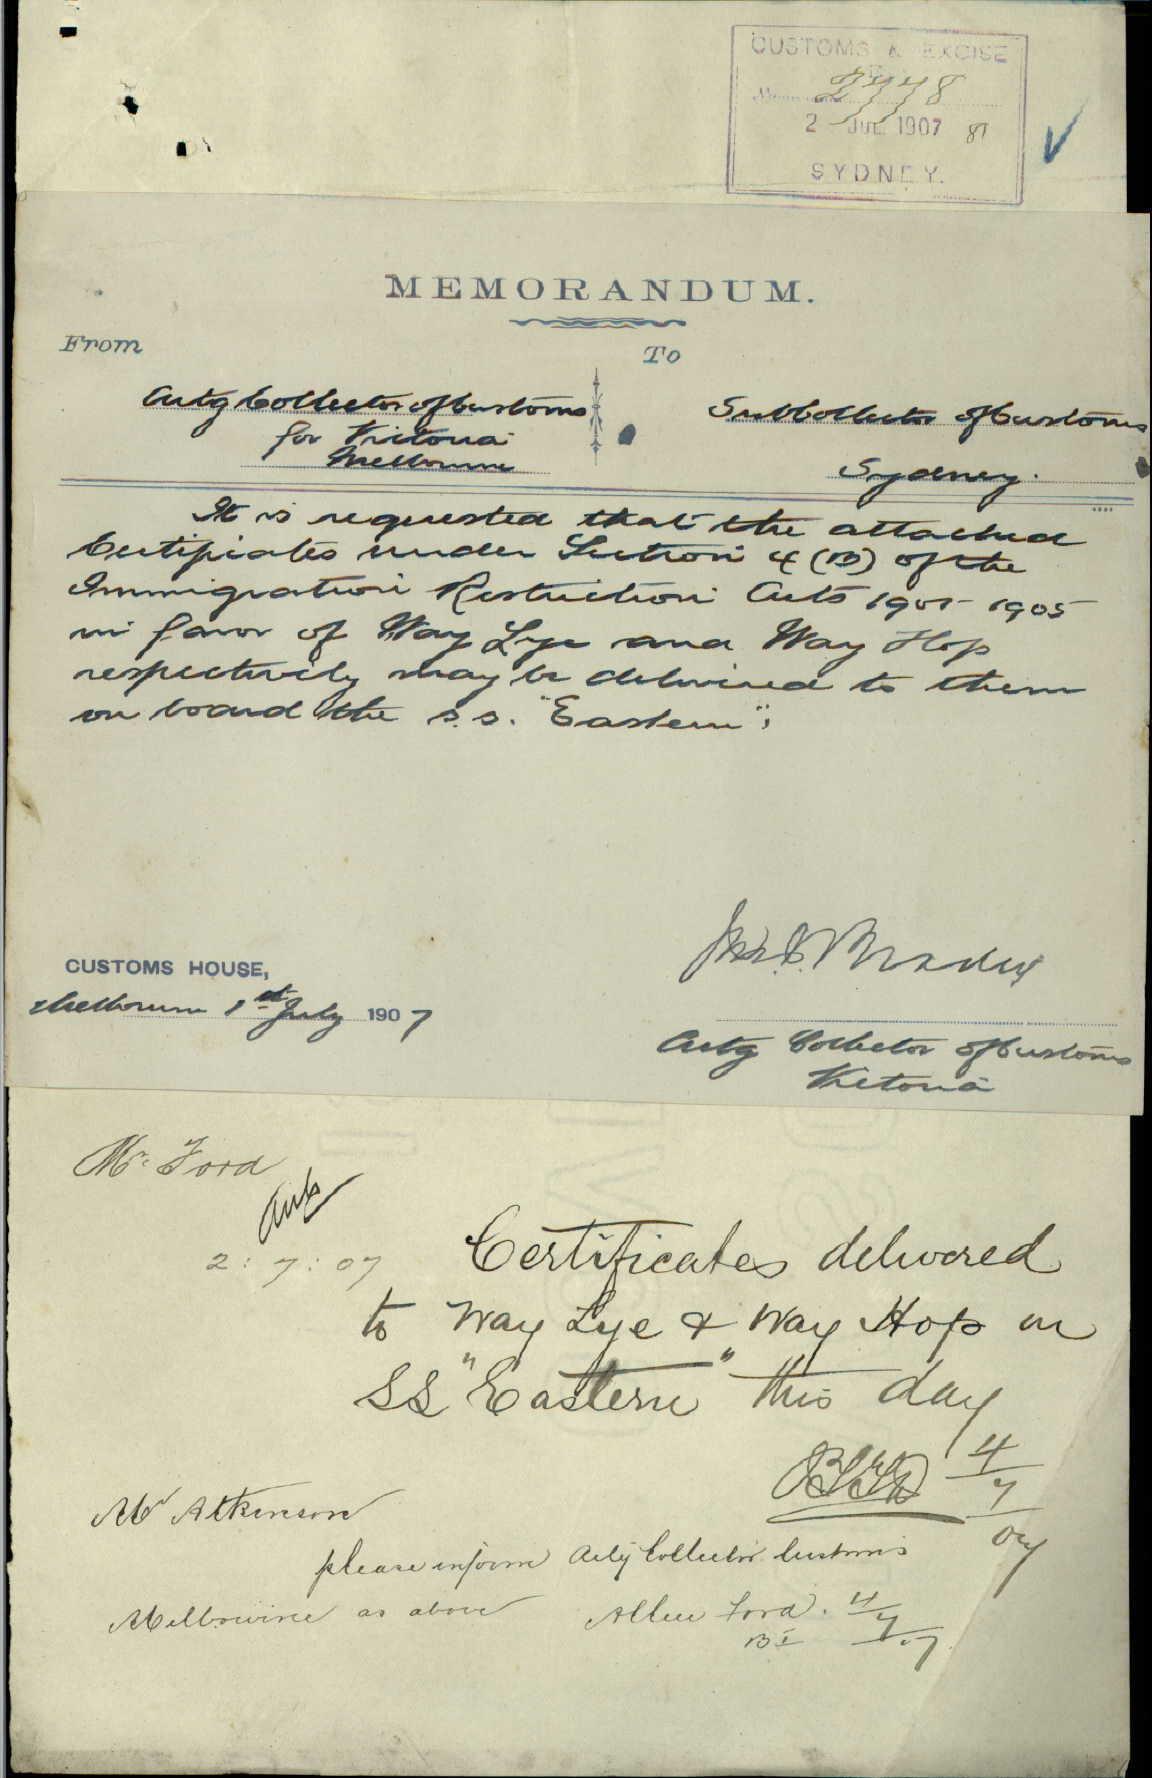 CUSTOMS & EXCISE
2 JUL 1907
SYDNEY.
MEMORANDUM.
From
To
Actg Collector of Customs
for Victoria
Melbourne
SubCollector of Customs
Sydney.
It is requested that the attached
Certificates under Section 4 (B) of the
Immigration Restriction Acts 1901-1905
in favor of Way Lye and Way Hop
respectively may be delivered to them
on board the s.s. "Eastern";
CUSTOMS HOUSE,
Melbourne 1st July 1907
Actg Collector of Customs
Victoria
Mr Ford
2:7:07
Certificates delivered
to Way Lye & Way Hop on
SS "Eastern" this day
4/7/07
Mr Atkinson
please inform Actg Collector Customs
Melbourne as above
Ford. 4/7/07